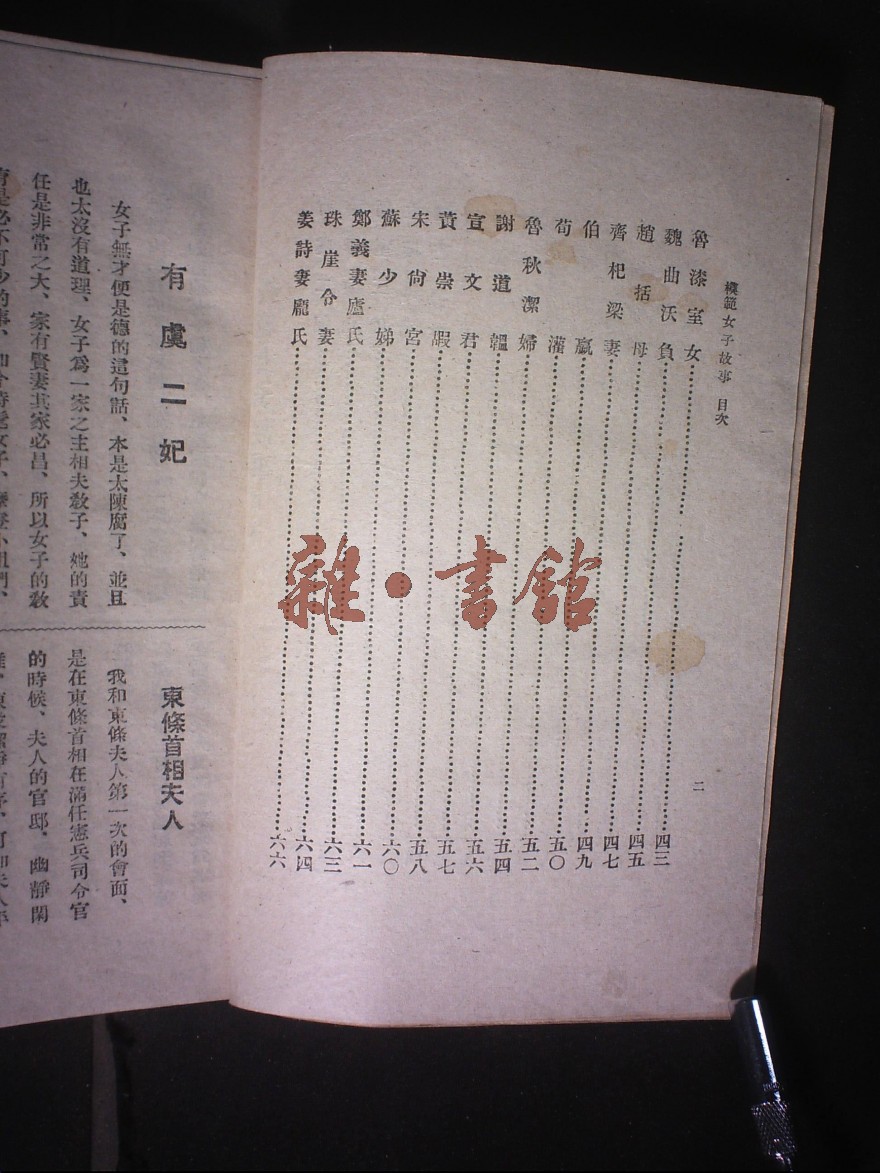 模範女子故事 目次
二
魯漆室女 四三
魏曲沃負 四五
趙括母 四七
齊杞梁妻 四九
伯嬴 五〇
荀灌 五二
魯秋潔婦 五四
謝道韞 五六
宣文君 五七
黃崇嘏 五八
宋尙宮 六〇
蘇少娣 六一
鄭義妻廬氏 六三
珠崖令妻 六四
姜詩妻龐氏 六六
有虞二妃
女子無才便是德的這句話、本是太陳腐了、並且
也太沒有道理、女子爲一家之主相夫敎子、她的責
任是非常之大、家有賢妻其家必昌、所以女子的敎
東條首相夫人
我和東條夫人第一次的會面、
是在東條首相在滿任憲兵司令官
的時候、夫人的官邸、幽靜閑
雜·書館